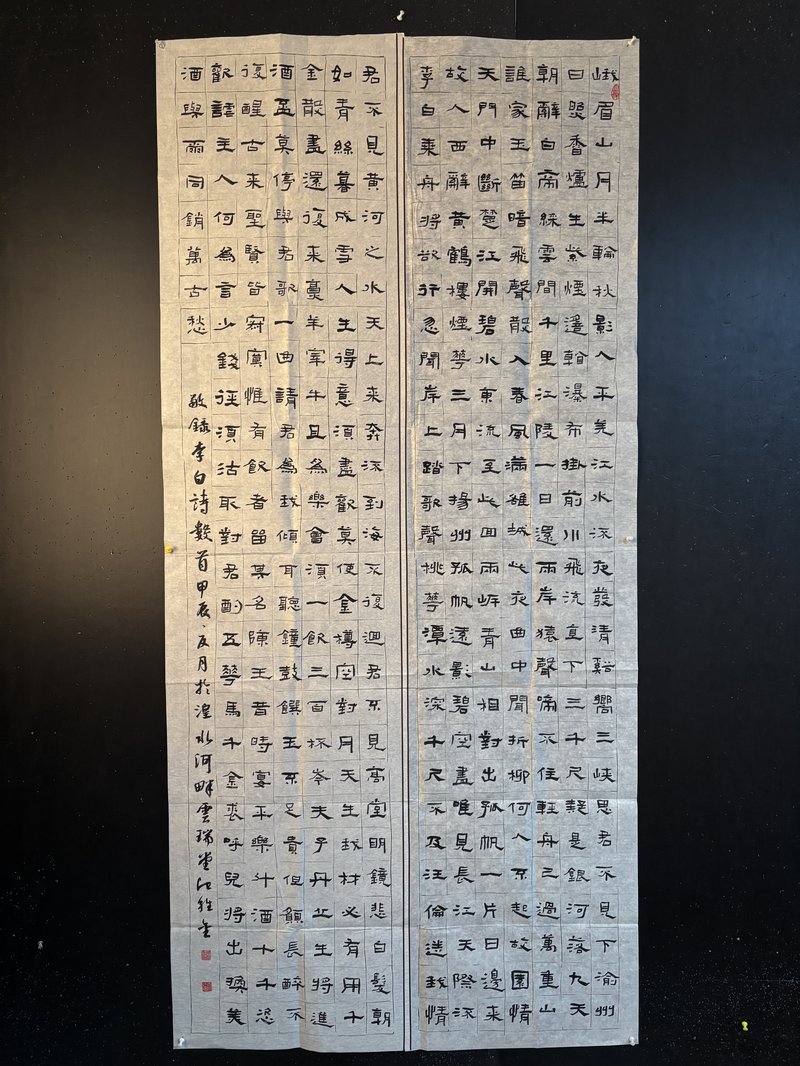 峨眉山月半輪秋影入平羌江水流夜發清谿嚮三峽思君不見下渝州
日照香爐生紫煙遙看瀑布掛前川飛流直下三千尺疑是銀河落九天
朝辭白帝綵雲間千里江陵一日還兩岸猿聲啼不住輕舟已過萬重山
誰家玉笛暗飛聲散入春風滿雒城此夜曲中聞折柳何人不起故園情
天門中斷楚江開碧水東流至此回兩岸青山相對出孤帆一片日邊來
故人西辭黃鶴樓煙華三月下揚州孤帆遠影碧空盡唯見長江天際流
李白乘舟將欲行忽聞岸上踏歌聲桃華潭水深千尺不及汪倫送我情
君不見黃河之水天上來奔流到海不復迴君不見高堂明鏡悲白髮朝
如青絲暮成雪人生得意須盡歡莫使金樽空對月天生我材必有用千
金散盡還復來烹羊宰牛且為樂會須一飲三百杯岑夫子丹丘生將進
酒盃莫停與君歌一曲請君為我傾耳聽鐘鼓饌玉不足貴但願長醉不
復醒古來聖賢皆寂寞惟有飲者留其名陳王昔時宴平樂斗酒十千恣
歡謔主人何為言少錢徑須沽取對君酌五華馬千金裘呼兒將出換美
酒與爾同銷萬古愁
敬錄李白詩數首甲辰夏月於湟水河畔雲瑞堂